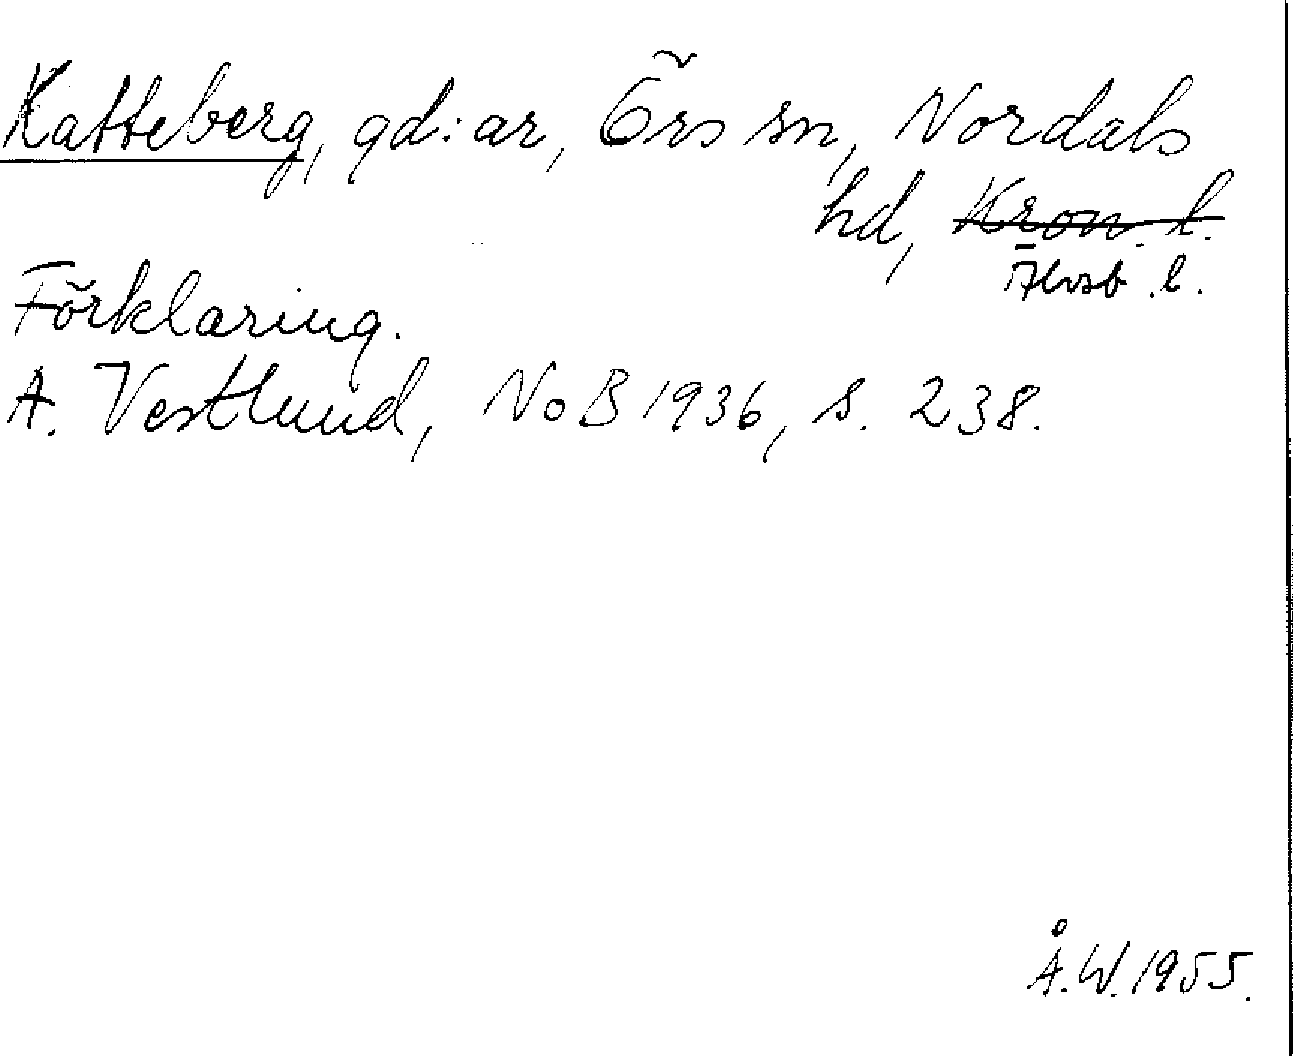 Katteberg, gd:ar, Örs sn, Nordals
hd, Kron. l.
Älvsb. l.
Förklaring.
A. Vestlund, NoB 1936, s. 238.
Å.W. 1955.